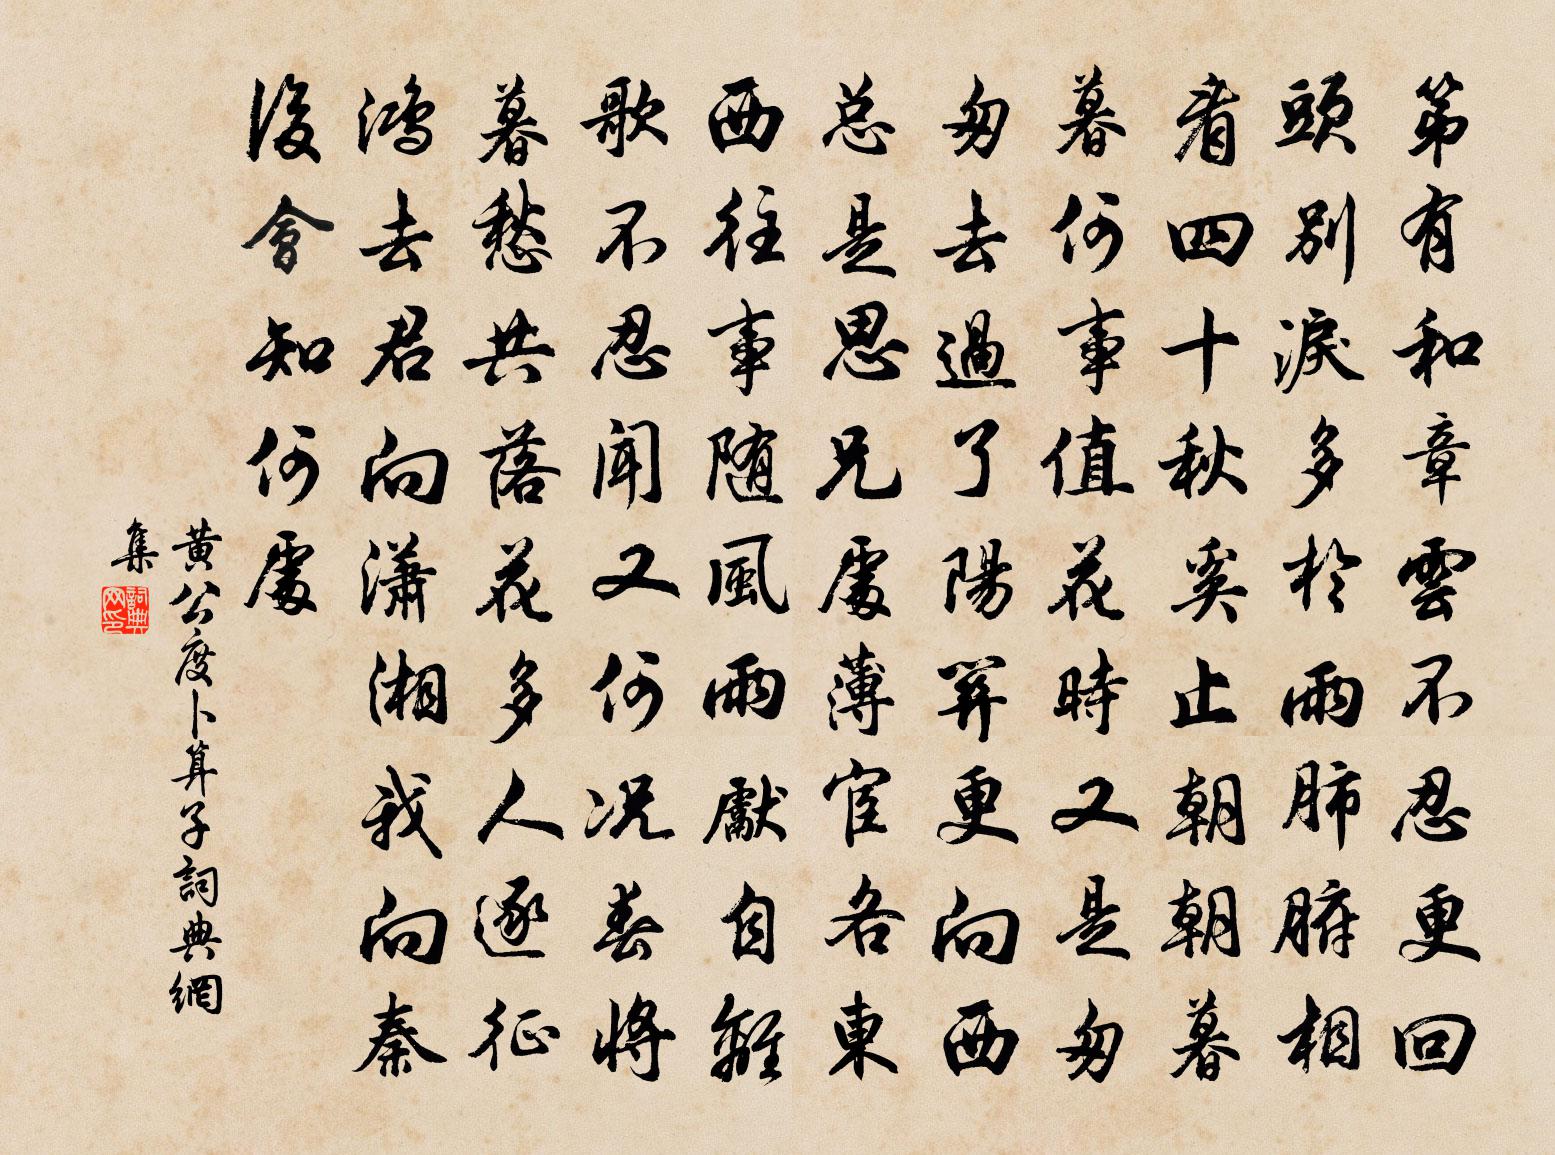 第有和章雲不忍更回
頭別淚多於雨肺腑相
看四十秋奚止朝朝暮
暮何事值花時又是匆
匆去過了陽關更向西
总是思兄處薄宦各東
西往事随風雨獻自離
歌不忍聞又何况春將
暮愁共落花多人逐征
鴻去君向瀟湘我向秦
後會知何處
黃公度卜算子詞典網
集
詞典
网印